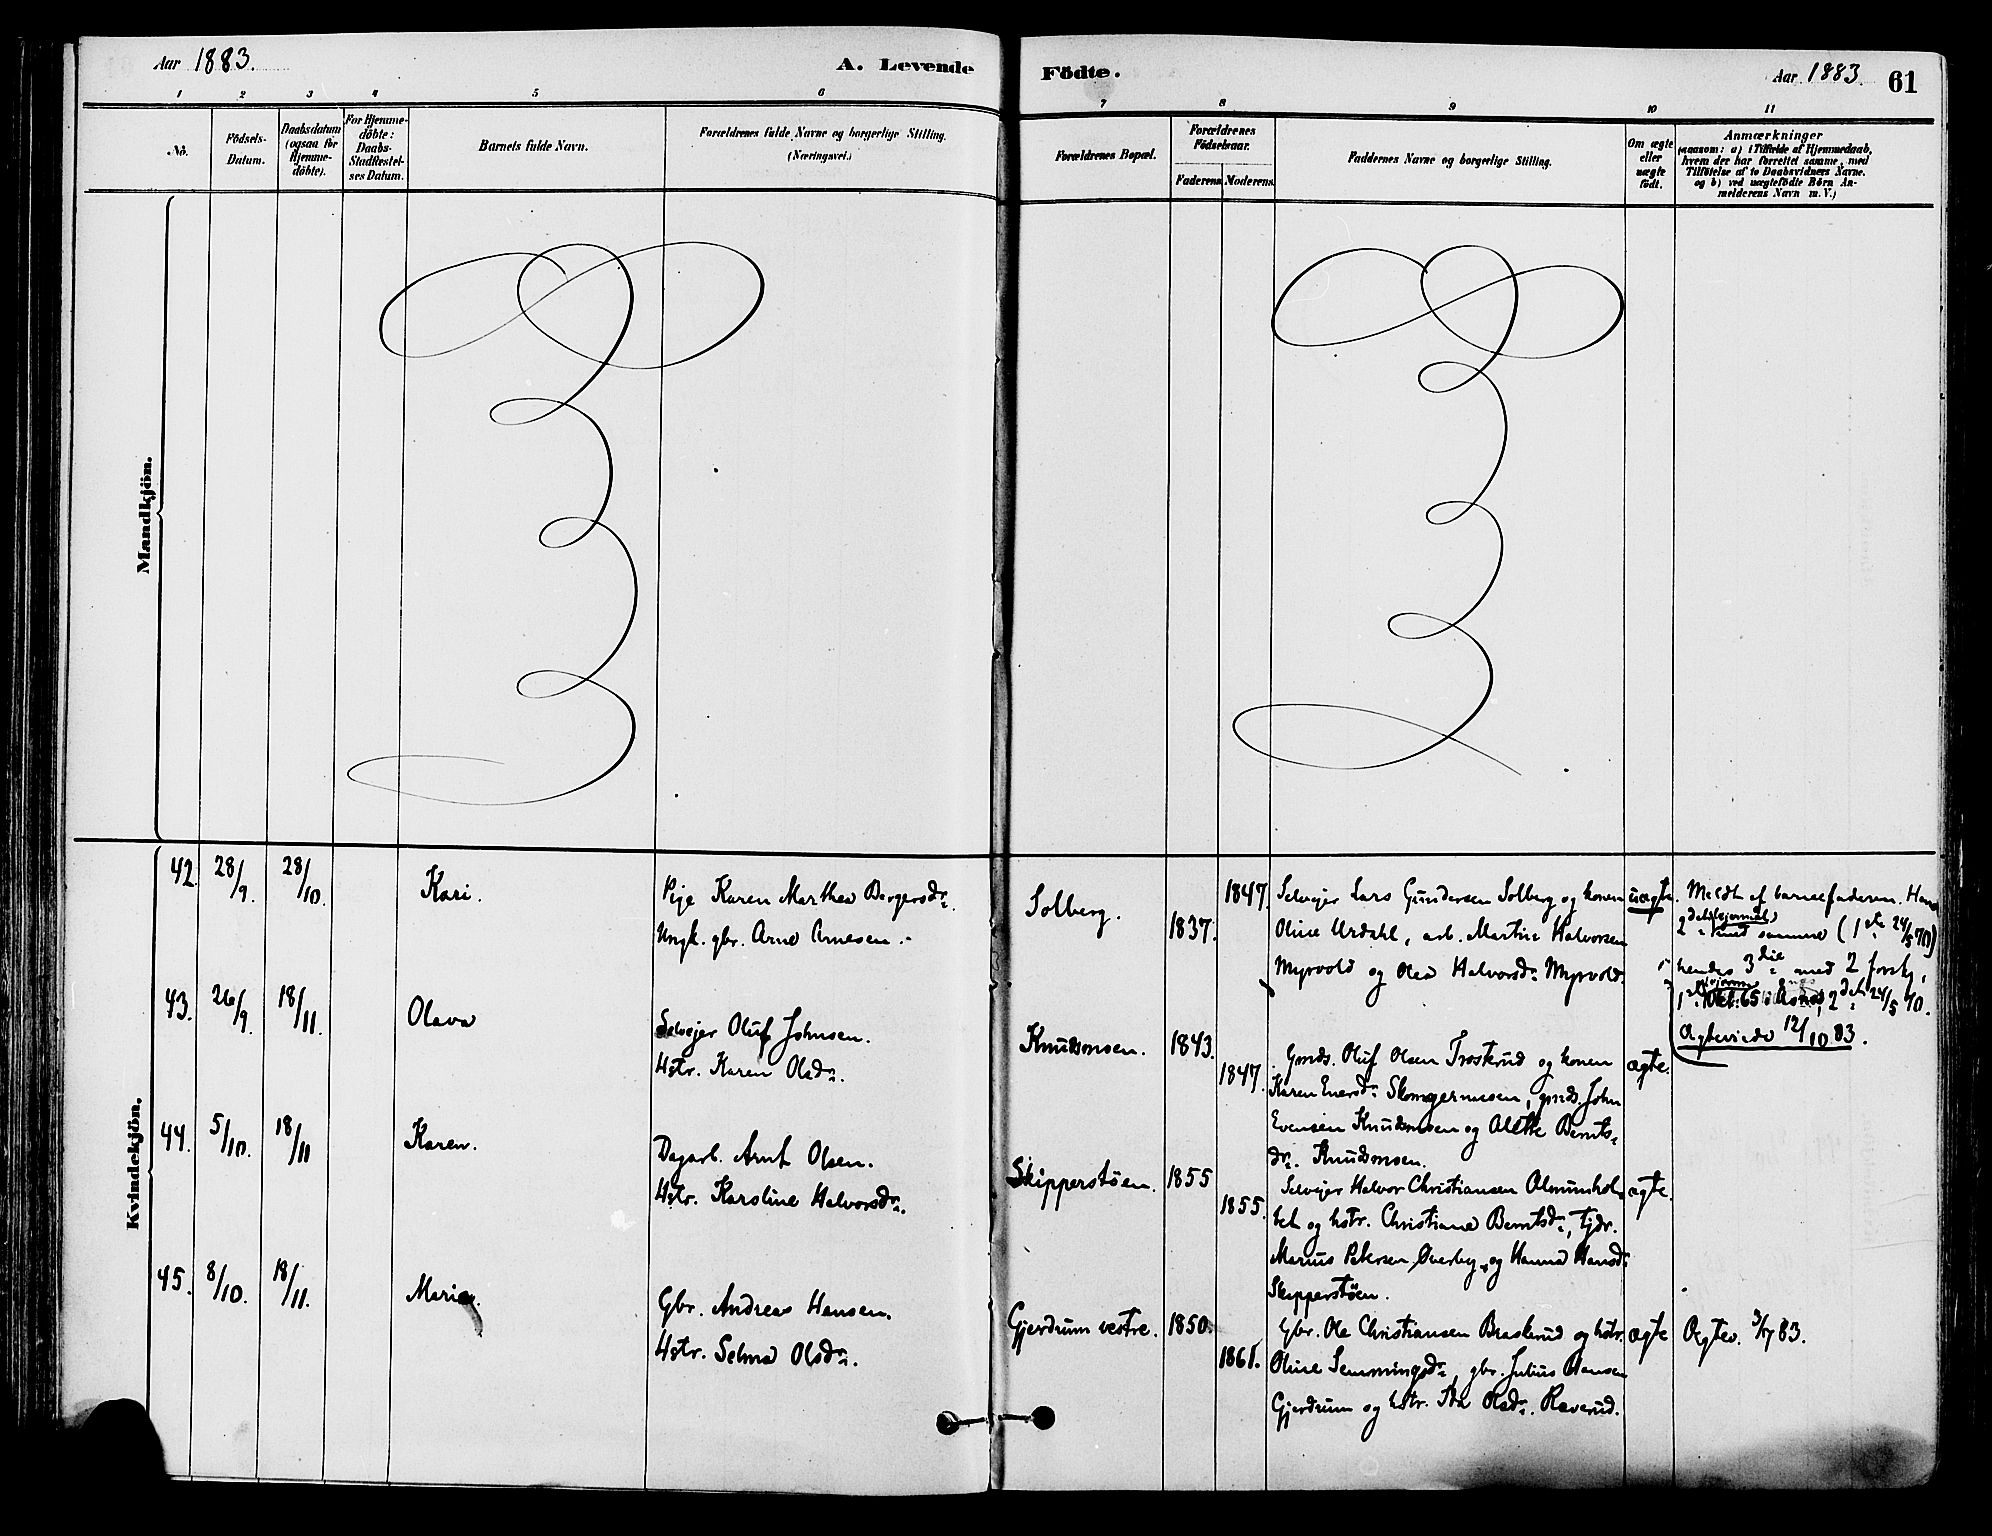 Aar 1883.
A. Levende
Födte.
Aar 1883.
61
1 2 3 4 5 6
7 8 9 10 11
No.
Födsels-
Datum.
Daabsdatum
(ogsaa for
Hjemme-
döbte).
For Hjemme-
döbte:
Daabs-
Stadfæstel-
ses Datum.
Barnets fulde Navn.
Forældrenes fulde Navne og borgerlige Stilling.
(Næringsvei.)
Forældrenes Bopæl.
Forældrenes
Födselsaar.
Faderens Moderens
Faddernes Navne og borgerlige Stilling.
Om ægte
eller
uægte
födt.
Anmærkninger
(saasom: a) i Tilfælde af Hjemmedaab,
hvem der har forrettet samme, med
Tilföielse af to Daabsvidners Navne.
og b) ved uægtefödte Börn An-
melderens Navn m. V.)
Mandkjön.
Kvindekjön.
42. 28/9. 28/10. Kari.
Pige Karen Marthea Bergersdr.
Ungk. gbr. Arne Arnesen.
Solberg.
1847.
1837.
Selvejer Lars Gundersen Solberg og konen
Oline Urdahl, arb. Martin Halvorsen
Myrvold og Olea Halvorsdr. Myrvold.
uægte.
Meldt af barnefaderen. Hans
2det med samme (1ste 24/5 70)
hendes 3die med 2 forskj.
2det 24/5 70.
Ægteviede 12/10 83.
43. 26/9. 18/11. Olava
Selvejer Oluf Johnsen.
Hstr. Karen Olsdr.
Knudsmoen.
1843.
1847.
Gmds. Oluf Olsen Troskrud og konen
Karen Enersdr. , gmds. John
Evensen Knudsmoen og Alette Bernts-
dr. Knudsmoen.
ægte.
44. 5/10. 18/11 Karen.
Dagarb. Arnt Olsen.
Hstr. Karoline Halvorsdr.
Skipperstöen.
1855
1855.
Selvejer Halvor Christiansen
og hstr. Christiane Berntsdr., tjdr.
Marius Petersen Överby og Hanna Hansdr.
Skipperstöen.
ægte.
45. 8/10. 18/11. Maria.
Gbr. Andreas Hansen.
Hstr. Selma Olsdr.
Gjerdrum vestre.
1850.
1861.
Gbr. Ole Christiansen Braskerud og hstr.
Oline Semmingsdr., gbr. Julius Hansen
Gjerdrum og hstr. Ida Olsdr. Raverud.
ægte
Ægtev. 3/7 83.